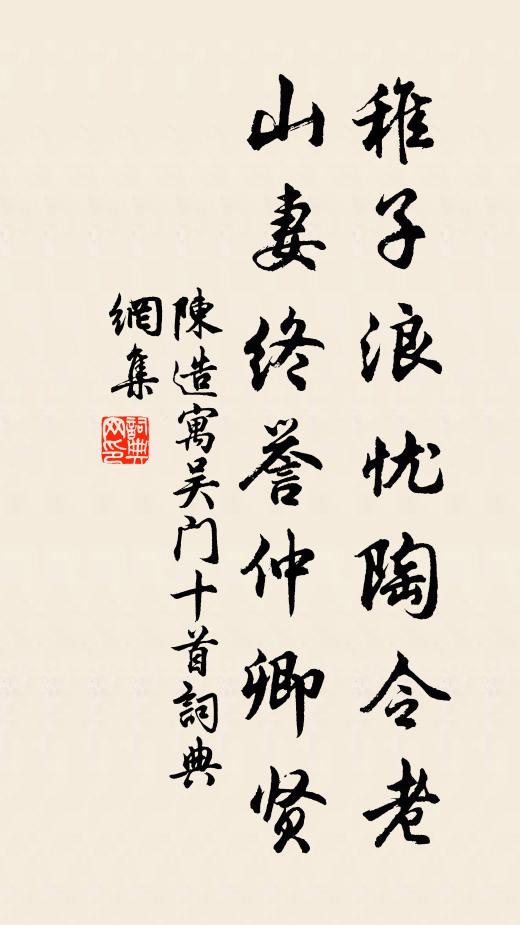 稚子浪忧陶令老
山妻终誉仲卿贤
陳造寓吴门十首詞典
網集
詞典网印